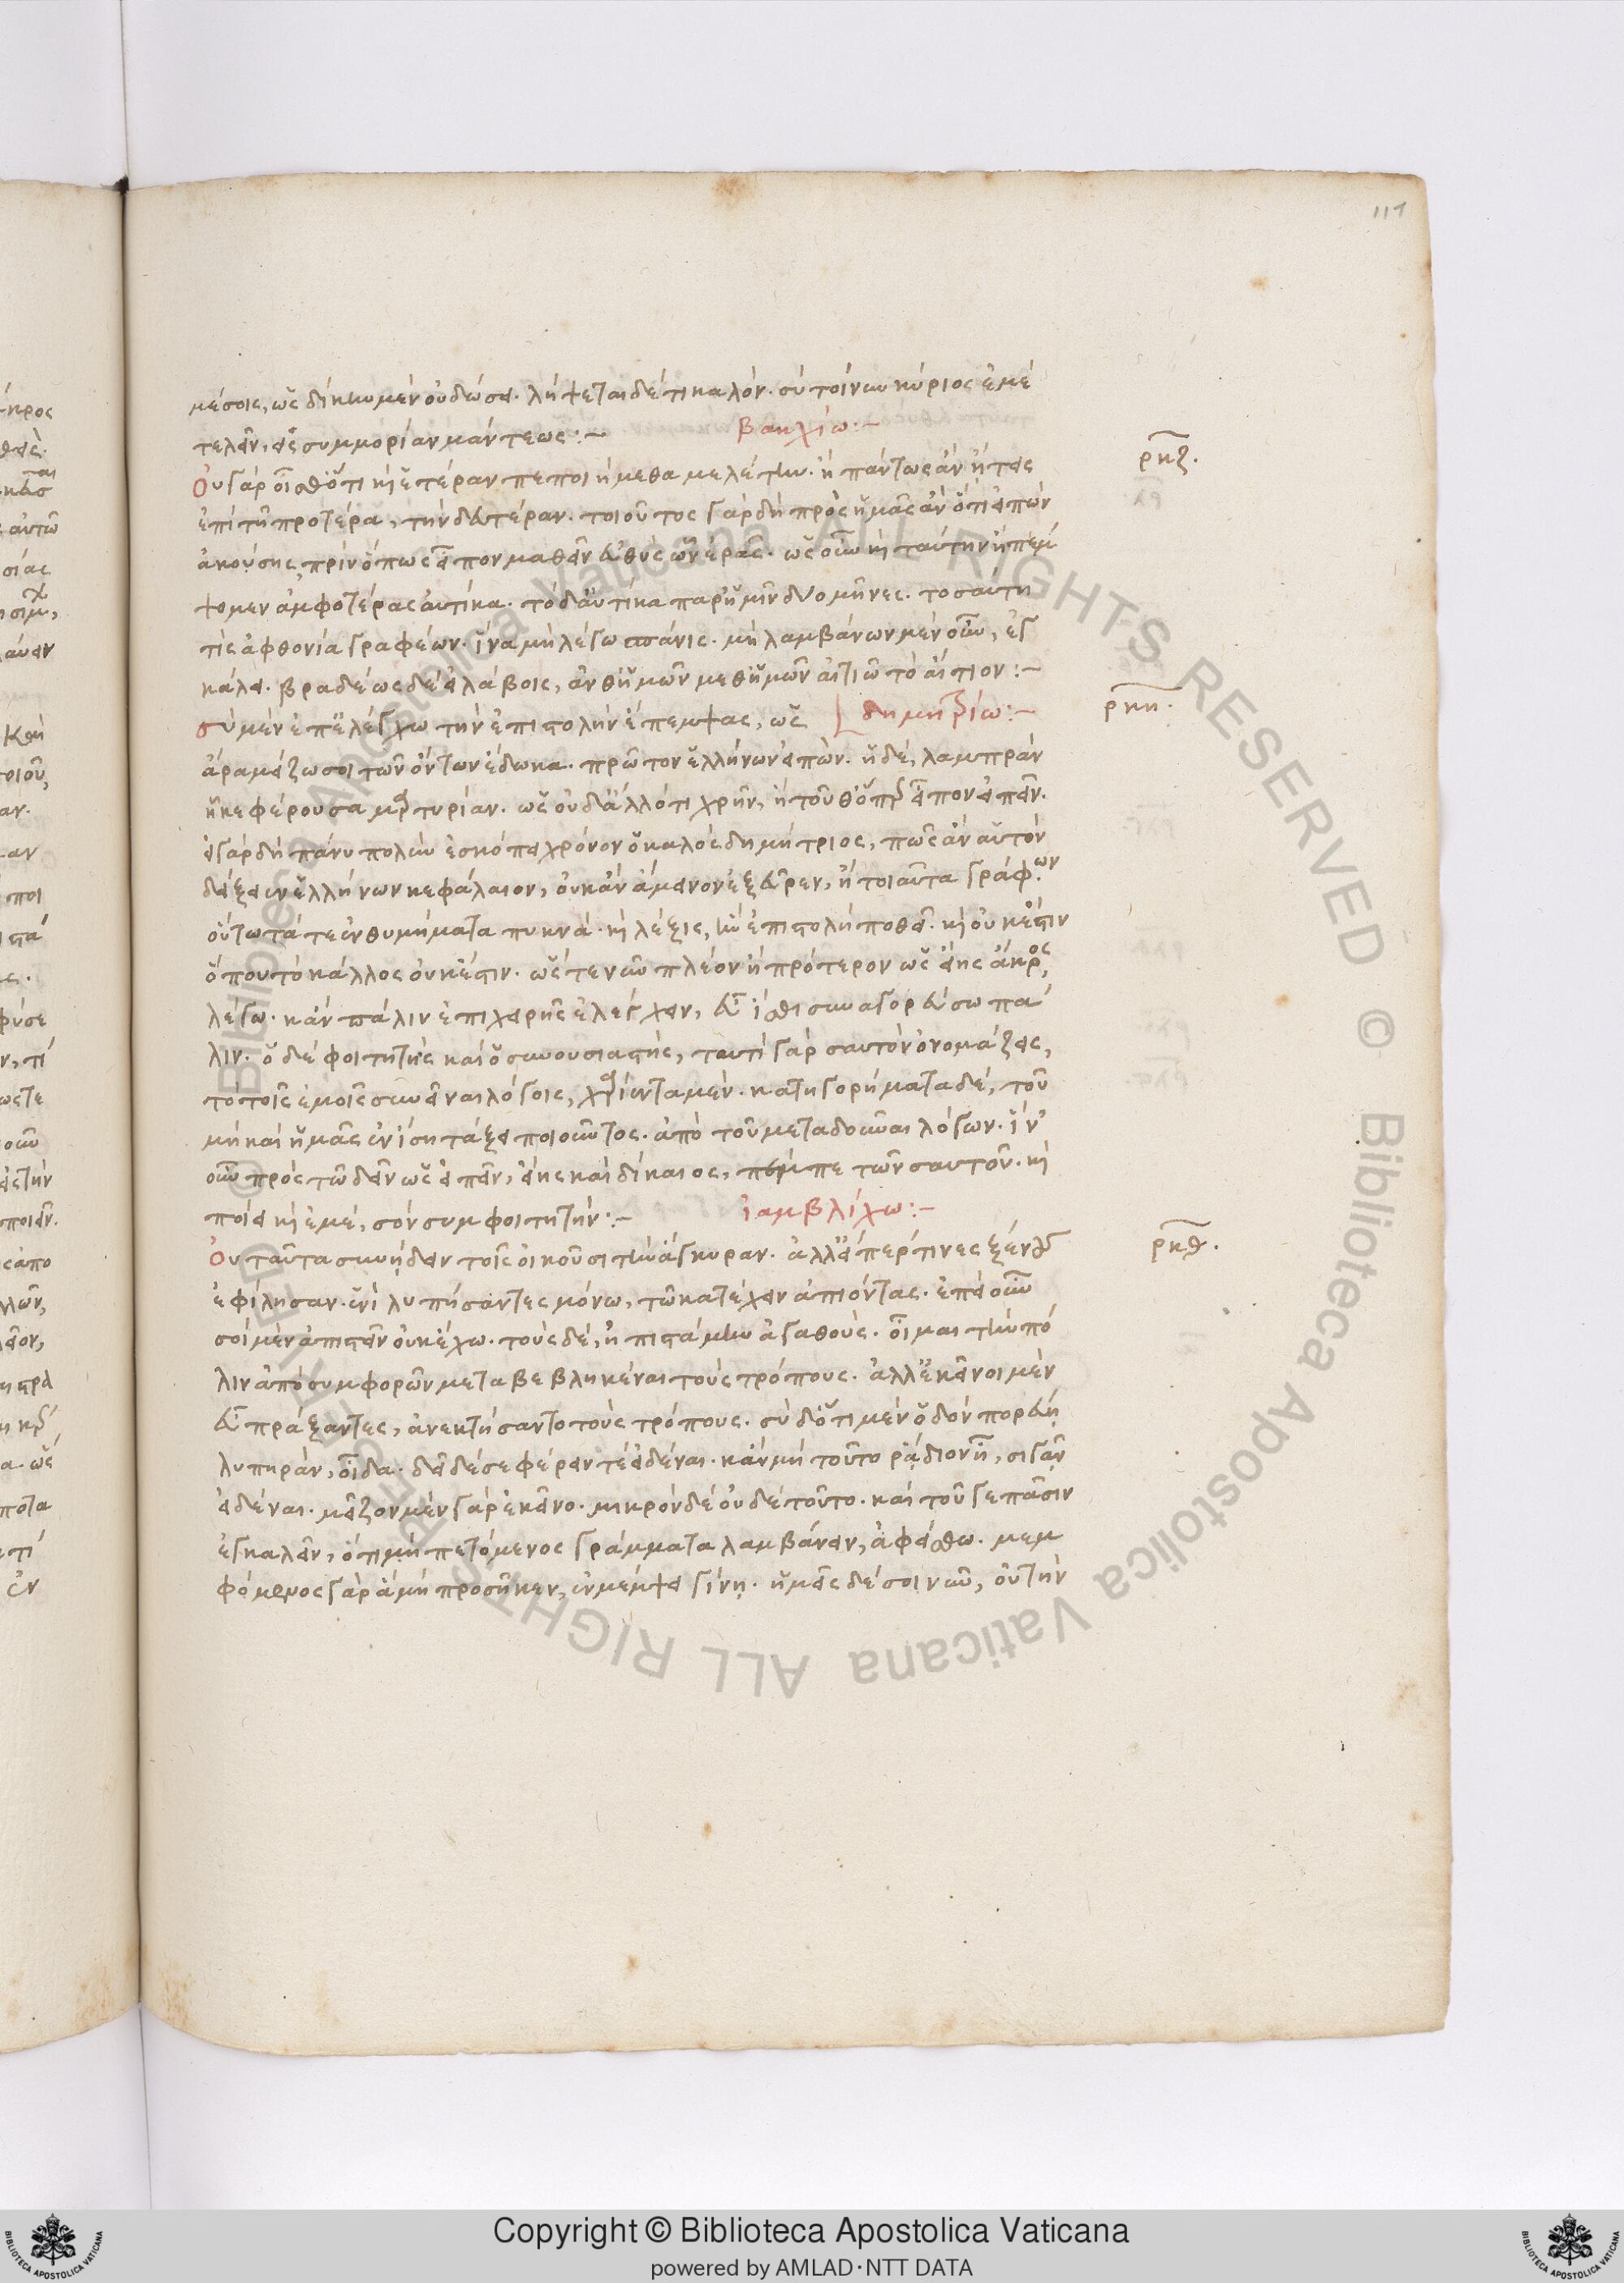 117
μέσοις, ὡς δίκην μὲν οὐ δώσει. λήψεται δέ τι καλόν. σὺ τοίνυν κύριος ἐμὲ
τελεῖν, εἰς συμμορίαν μάντεως:~ βακχίω:~
ρκζ.
Οὐ γὰρ οἶσθ' ὅτι κ(αὶ) ἑτέραν πεποιήμεθα μελέτην. ἢ πάντως ἂν ᾔτεις
ἐπὶ τῆ προτέρα, τὴν δευτέραν. τοιοῦτος γὰρ δὴ πρὸς ἡμᾶς ἂν ὅτι εἰπὼν
ἀκούσης, πρὶν ὅπως εἶπον μαθεῖν εὐθὺς ὢν ἐρᾶς. ὡς οὖν κ(αὶ) ταύτην ἢ πέμ
ψομεν ἀμφοτέρας αὐτίκα. τὸ δ' αὐτίκα παρ' ἡμῖν δύο μῆνες. τοσαύτη
τις ἀφθονία γραφέων. ἵνα μὴ λέγω σπάνις. μὴ λαμβάνων μὲν οὖν, ἐγ
κάλει. βραδέως δὲ εἰ λάβοις, ἀνθ' ἡμῶν μεθ' ἡμῶν αἰτιῶ τὸ αἴτιον:~
σὺ μὲν ἐπ' ἐλέγχω τὴν ἐπιστολὴν ἔπεμψας, ὡς δημητρίω:~
ρκη.
ἄρα μείζω σοι τῶν ὄντων ἔδωκα. πρῶτον ἑλλήνων εἰπών. ἡ δέ, λαμπρὰν
ἧκε φέρουσα μαρτυρίαν. ὡς οὐδ' ἄλλό τι χρῆν, ἢ τοῦθ' ὅπερ εἶπον εἰπεῖν.
εἰ γὰρ δὴ πάνυ πολὺν ἐσκόπει χρόνον ὁ καλὸς δημήτριος, πῶς ἂν αὑτὸν
δείξειεν ἑλλήνων κεφάλαιον, οὐκ ἂν ἄμεινον ἐξεῦρεν, ἢ τοιαῦτα γράφων
οὕτω τά τε ἐνθυμήματα πυκνά. κ(αὶ) λέξις, ἣν ἐπιστολὴ ποθεῖ. κ(αὶ) οὐκ ἔστιν
ὅπου τὸ κάλλος οὐκ ἔστιν. ὥστε νῦν πλέον ἢ πρότερον ὡς εἴης ἄκρος
λέγω. κἂν πάλιν ἐπιχειρῆς ἐλέγχειν, εὖ ἴσθι συναγορεύσω πά
λιν. ὁ δὲ φοιτητὴς καὶ ὁ συνουσιαστής, ταυτὶ γὰρ σαυτὸν ὀνομάζεις,
τὸ τοῖς ἐμοῖς συνεῖναι λόγοις, χαρίεντα μέν. κατηγορήματα δέ, τοῦ
μὴ καὶ ἡμᾶς ἐν ἴση τάξει ποιοῦντος. ἀπὸ τοῦ μεταδοῦναι λόγων. ἵν'
οὖν πρὸς τῶ δεῖν ὡς εἰπεῖν, εἴης καὶ δίκαιος, πέμπε τῶν σαυτοῦ. κ(αὶ)
ποίει κ(αὶ) ἐμέ, σὸν συμφοιτητήν:~ ἰαμβλίχω:~
ρκθ.
Οὐ ταῦτα συνήδειν τοῖς οἰκοῦσι τὴν ἄγκυραν. ἀλλ' εἴπερ τινες ξένους
ἐφίλησαν. ἑνὶ λυπήσαντες μόνω, τῶ κατέχειν ἀπιόντας. ἐπεὶ οὖν
σοὶ μὲν ἀπιστεῖν οὐκ ἔχω. τοὺς δέ, ἠπιστάμην ἀγαθούς. οἶμαι τὴν πό
λιν ἀπὸ συμφορῶν μεταβεβληκέναι τοὺς τρόπους. ἀλλ' ἐκεῖνοι μὲν
εὖ πράξαντες, ἀνεκτήσαντο τοὺς τρόπους. σὺ δ' ὅτι μὲν ὁδὸν πορεύη
λυπηράν, οἶδα. δεῖ δέ σε φέρειν τὲ εἰδέναι. κἂν μὴ τοῦτο ῥάδιον ἦ, σιγᾶν
εἰδέναι. μεῖζον μὲν γὰρ ἐκεῖνο. μικρὸν δὲ οὐδὲ τοῦτο. καὶ τοῦ γε πᾶσιν
ἐγκαλεῖν, ὅτι μὴ πετόμενος γράμματα λαμβάνειν, ἀφείσθω. μεμ
φόμενος γὰρ ἃ μὴ προσῆκεν, ἐν μέμψει γίνη. ἡμᾶς δέ σοι νῦν, οὐ τὴν
Copyright © Biblioteca Apostolica Vaticana
powered by AMLAD·NTT DATA